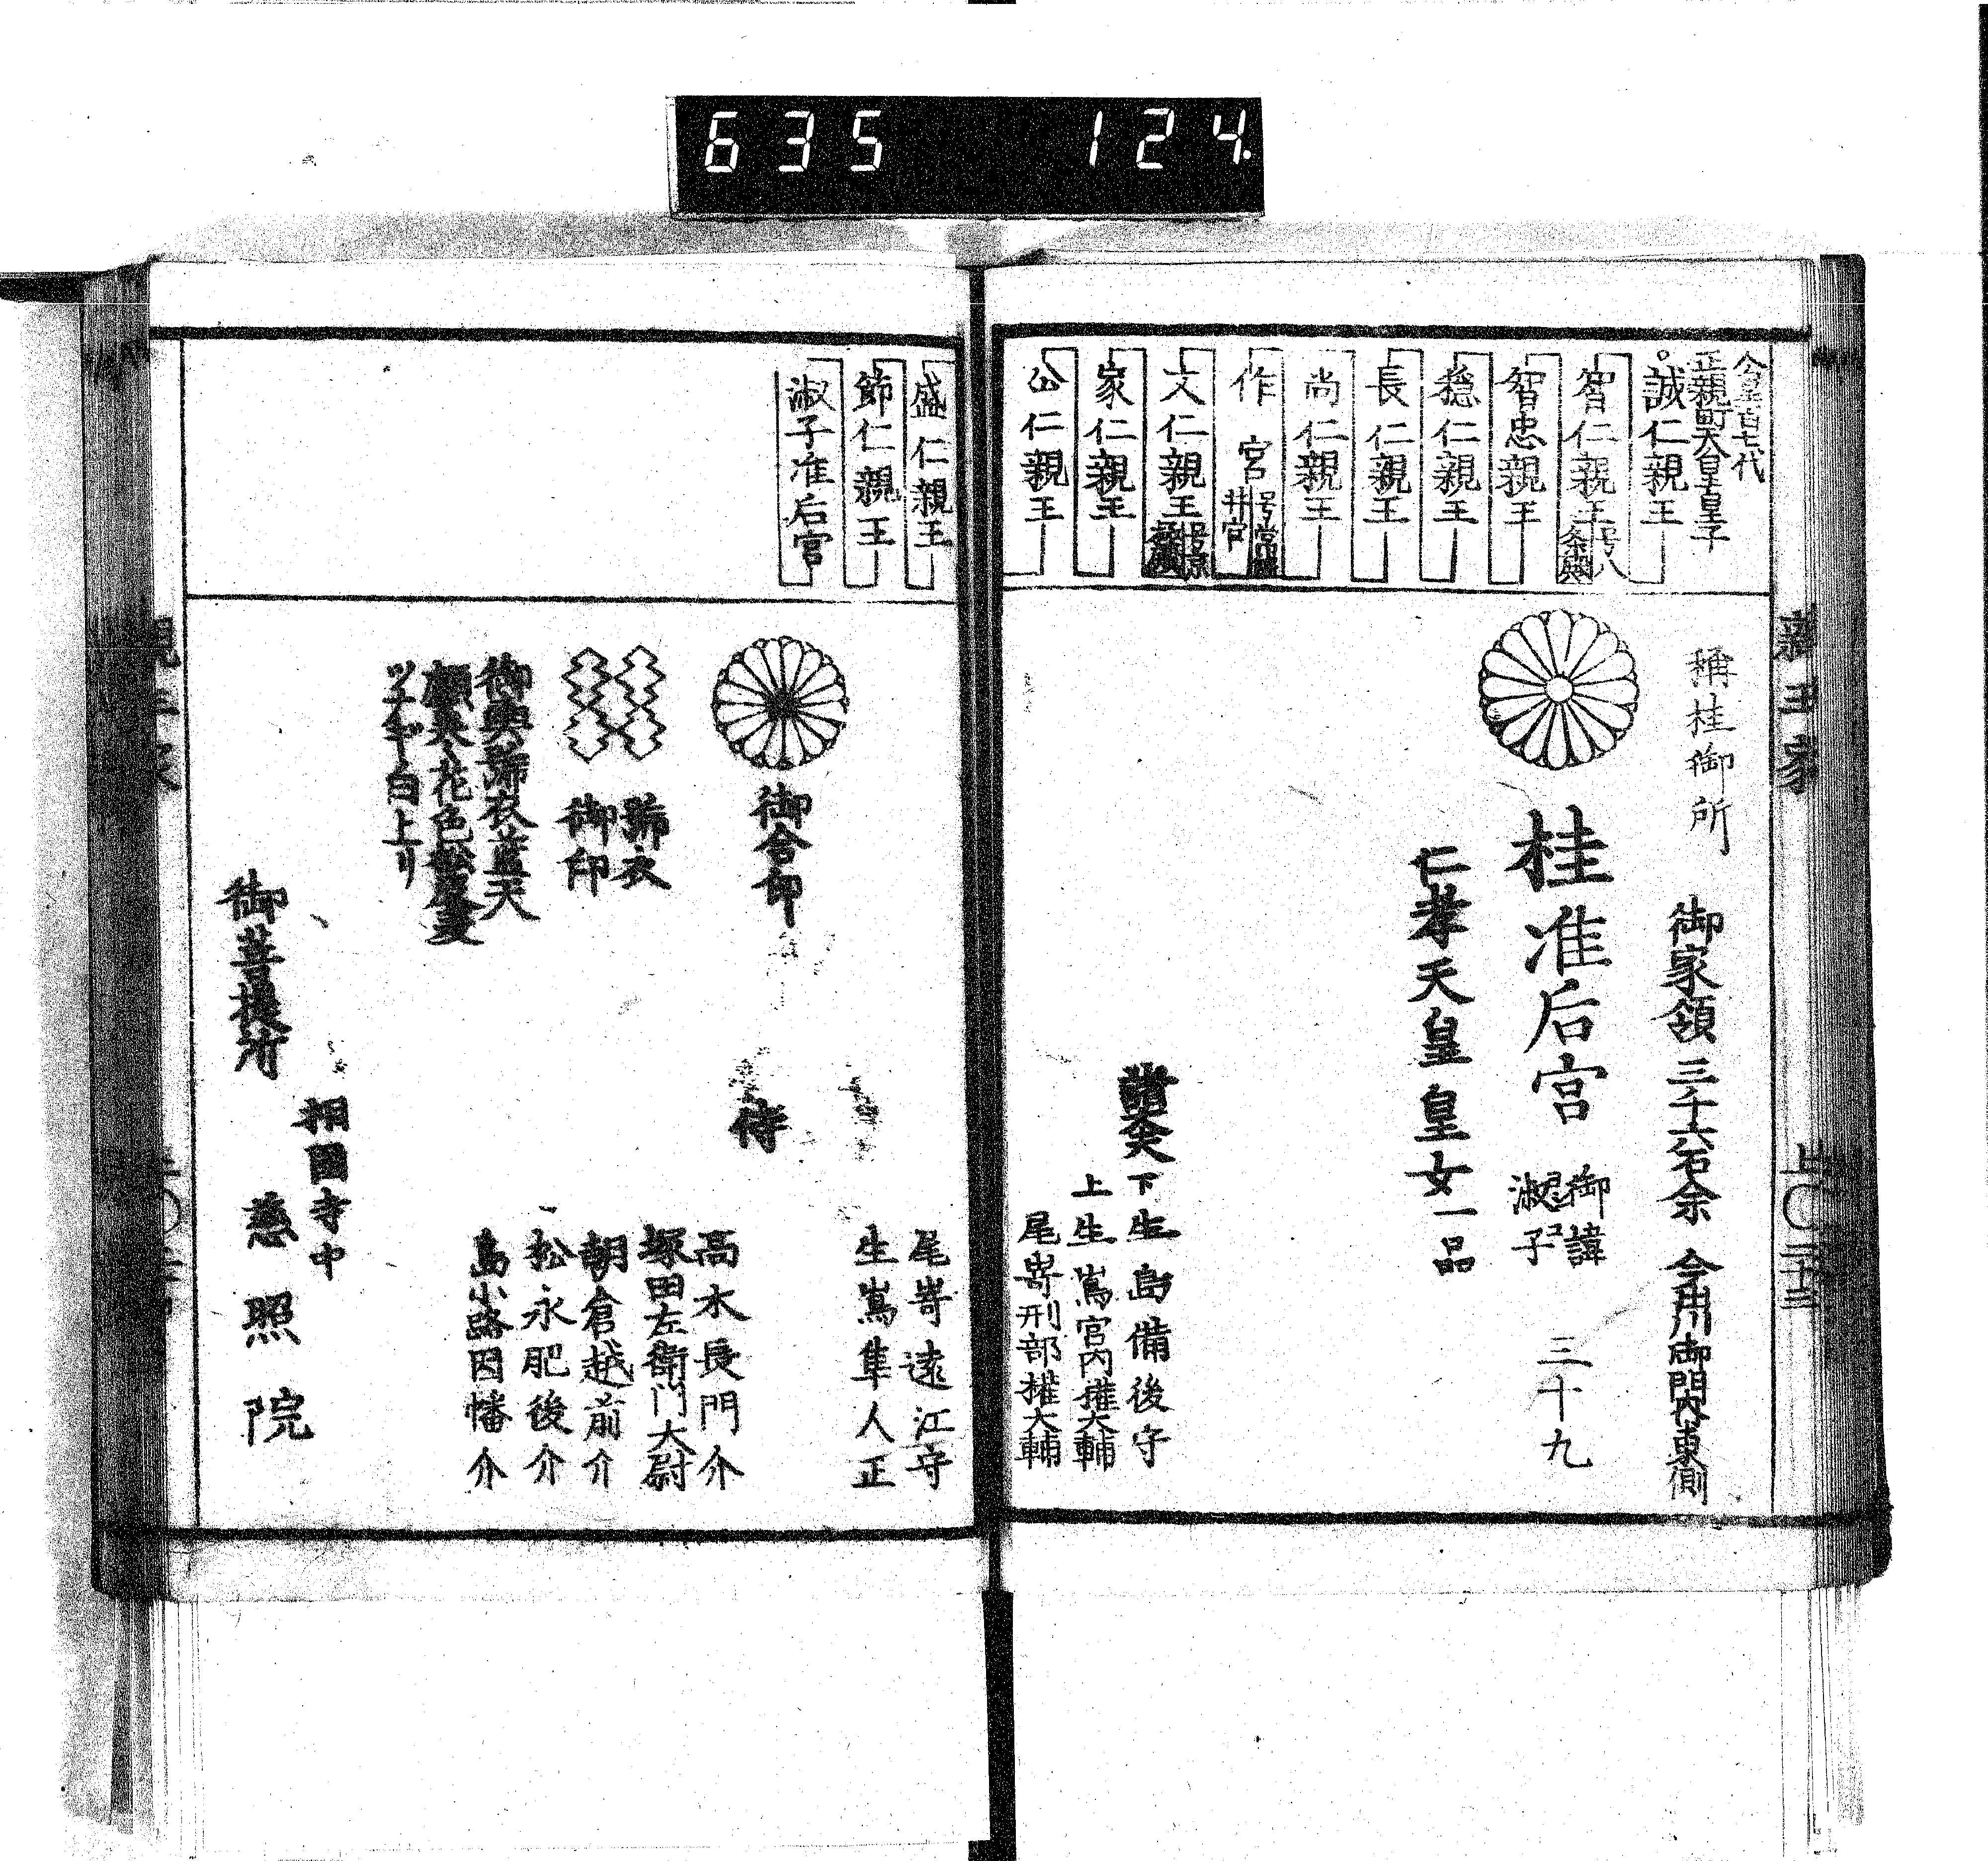 635 124
人皇百七代
正親町天皇皇子
誠仁親王
智仁親王 号八条殿
智忠親王
穏仁親王
長仁親王
尚仁親王
作宮 号常磐井宮
文仁親王 号京極殿
家仁親王
公仁親王
称桂御所
御家領三千六石余 今出川御門内東側
桂准后宮 御諱淑子 三十九
仁孝天皇皇女一品
諸大夫
下生島備後守
上生嶌宮内権大輔
尾嵜刑部権大輔
親王家
上〇三十三
盛仁親王
節仁親王
淑子准后宮
尾嵜遠江守
生嶌隼人正
御合印
侍
高木長門介
塚田左衛門大尉
朝倉越前介
松永肥後介
島小路因幡介
御印
御菩提所
相国寺中
慈照院